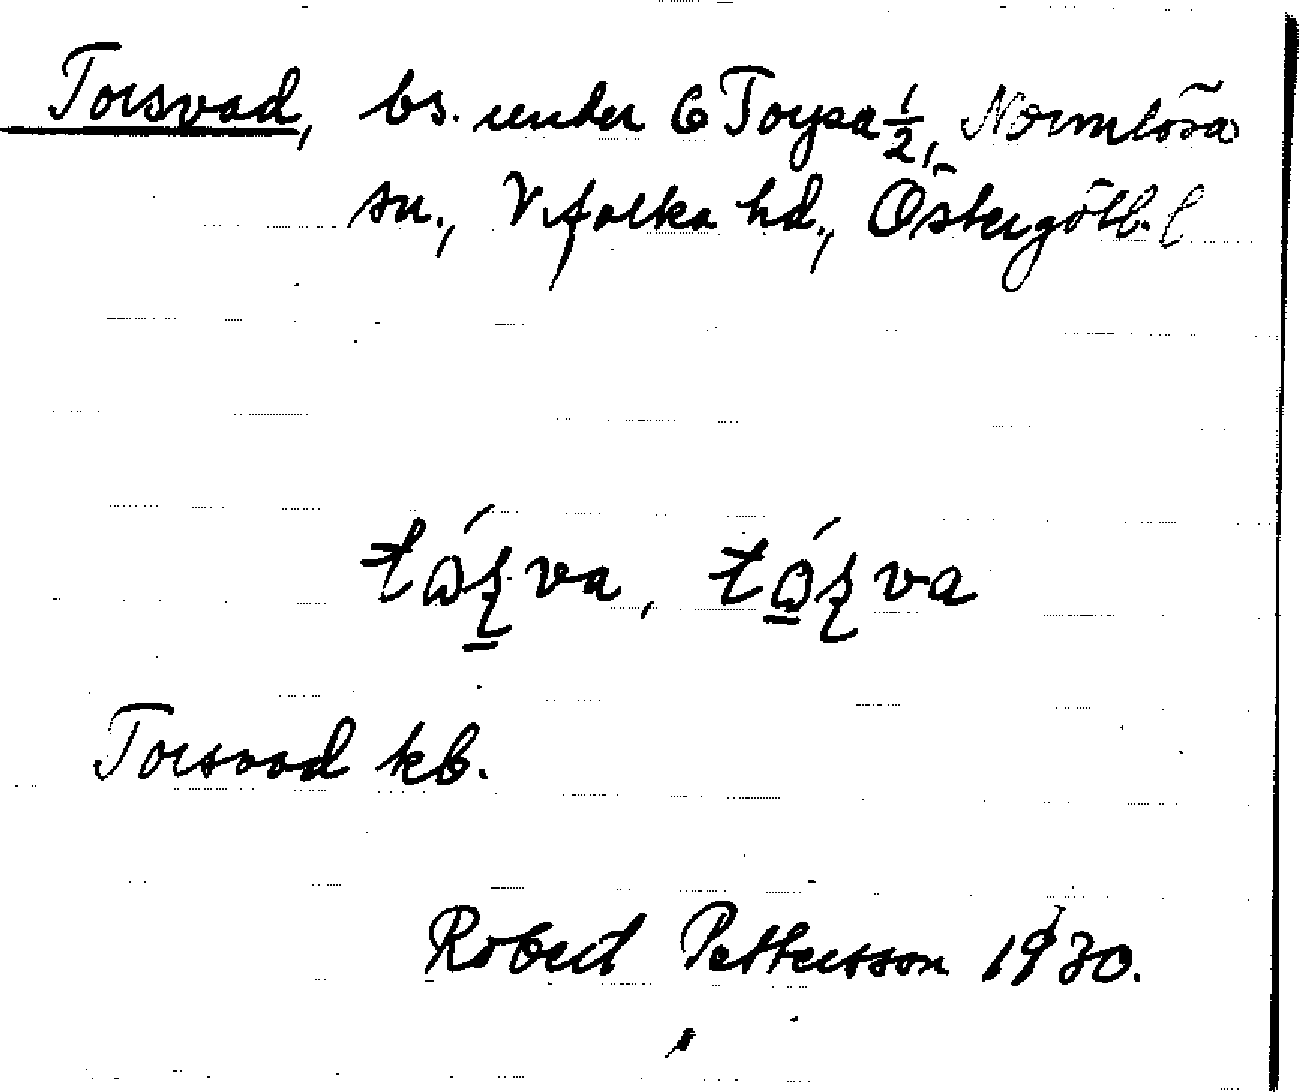 Torsvad, bs. under 6 Toysa ½, Normlösa
sn., Vifolka hd., Östergötl. l
Torsvad kb.
Robert Pettersson 1930.